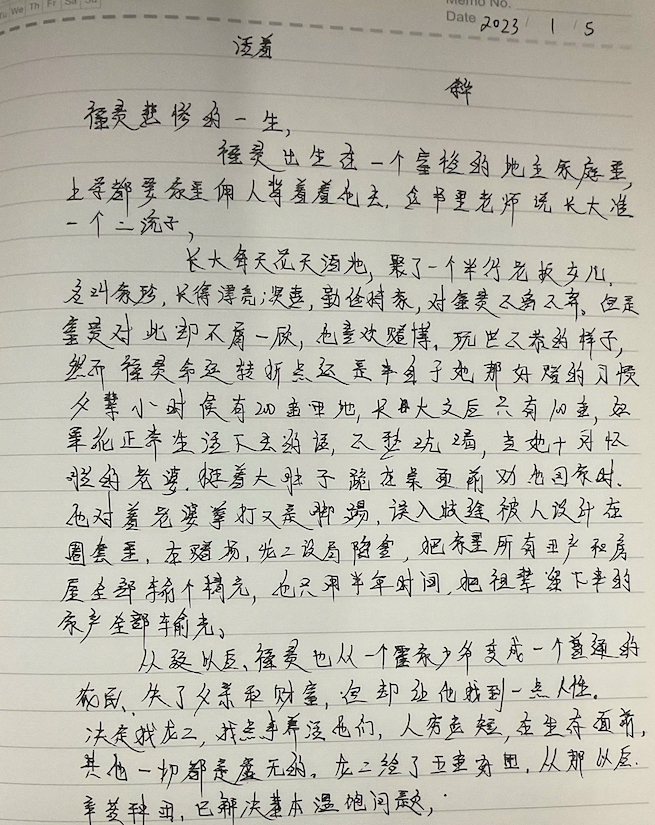 Tu We Th Fr Sa Su
Memo No.
Date 2023 1 5
活着
福贵悲惨的一生,
福贵出生在一个富裕的地主家庭里,
上学都要家里佣人背着他去,念书里老师说长大准
一个二流子,
长大每天花天酒地,娶了一个半行老板女儿.
名叫家珍,长得漂亮,勤俭持家,对福贵不离不弃。但是
富贵对此却不屑一顾,也喜欢赌博,玩世不恭的样子,
然而福贵命运转折点还是半身子她那好赌的习惯
父辈小时候有200亩田地,长大文后只有100亩,如
果能正常生活下去的话,不愁吃喝,当她十月怀
胎的老婆,挺着大肚子跪在桌面前劝他回家时.
他对着老婆拳打又是脚踢,误入歧途被人设计在
圈套里,在赌场,龙二设局陷害,把家里所有田产和房
屋全部输个精光,也只用半年时间,把祖辈留下来的
家产全部输光。
从政以后,福贵也从一个富家少爷变成一个普通的
农民,失了父亲和财富,但却让他找到一点人性。
决定找龙二,找点事养活他们,人穷志短,在生存面前,
其他一切都是虚无的。龙二给了五亩旁田,从那以后.
辛苦种田,已解决基本温饱问题,